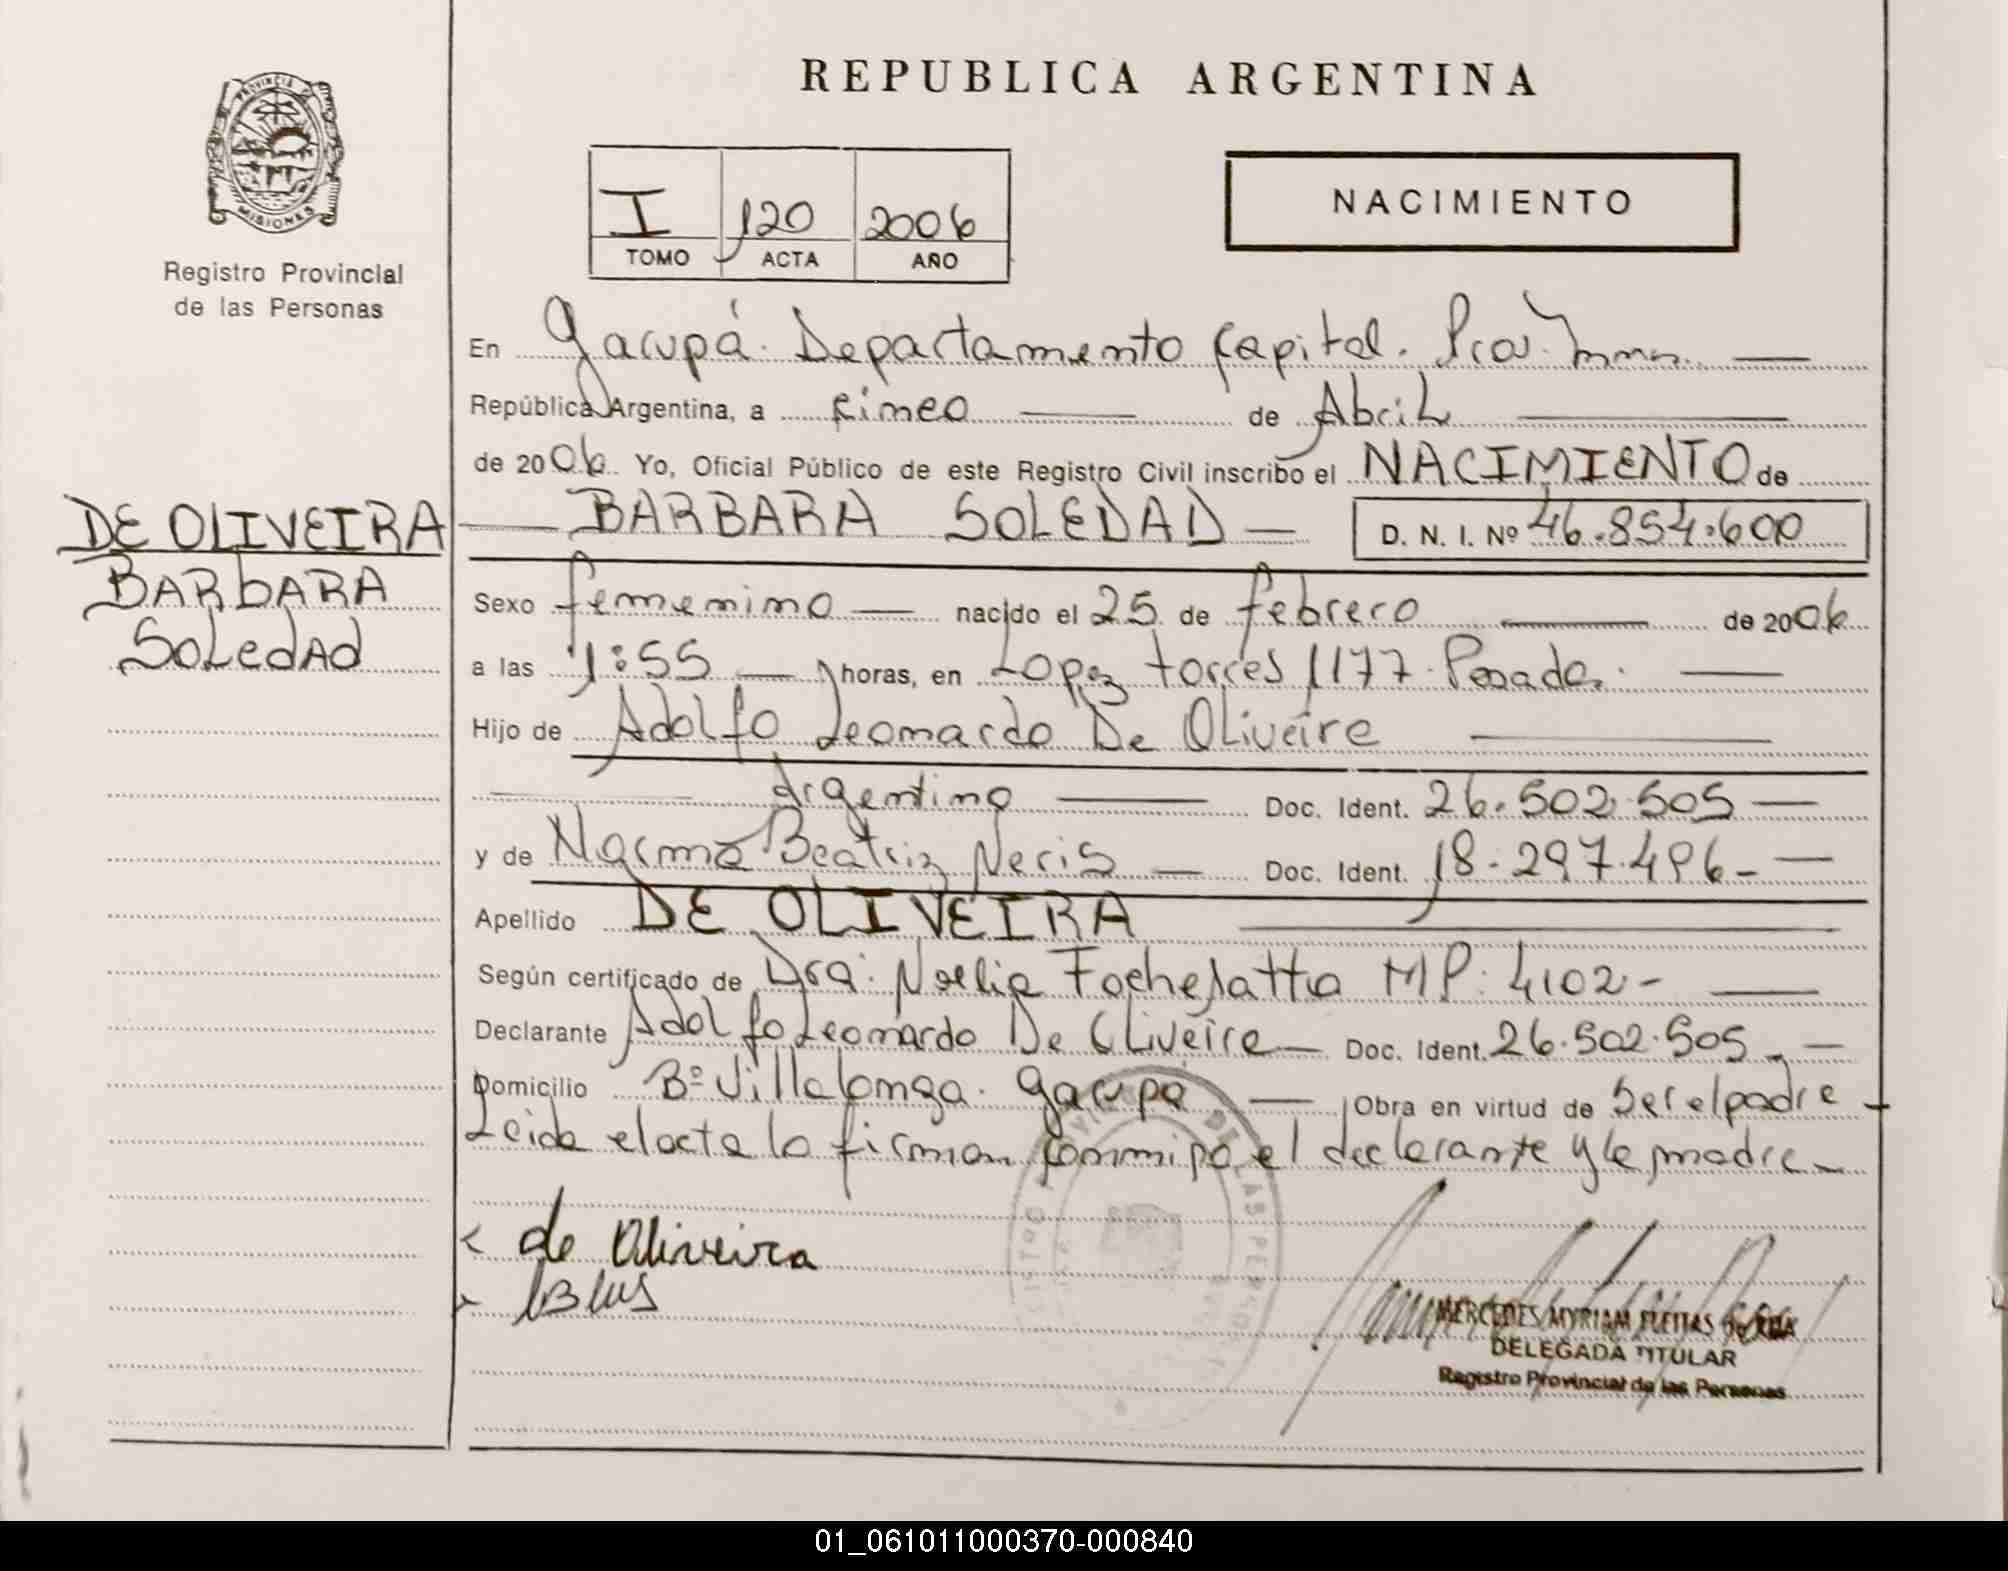 REPUBLICA ARGENTINA
PROVINCIA DE MISIONES
Registro Provincial
de las Personas
I 120 2006
TOMO ACTA AÑO
NACIMIENTO
En Garupá. Departamento Capital. Prov. Mnes.
República Argentina, a Cinco de Abril
de 2006 Yo, Oficial Público de este Registro Civil inscribo el NACIMIENTO de
BARBARA SOLEDAD D. N. I. Nº 46.854.600
DE OLIVEIRA
BARbARA
SoLedAd
Sexo femenino nacido el 25 de febrero de 2006
a las 1:55 horas, en Lopez Torres 1177. Posadas.
Hijo de Adolfo Leonardo De Oliveira
argentino Doc. Ident. 26.502.505
y de Norma Beatriz Neris Doc. Ident. 18.297.496-
Apellido DE OLIVEIRA
Según certificado de Dra. Noelia Fochesatto MP. 4102-
Declarante Adolfo Leonardo De Oliveira Doc. Ident. 26.502.505
Domicilio Bº Villalonga. Garupá Obra en virtud de Ser el padre
Leida el acta la firman conmigo el declarante y la madre
de Oliveira
MERCEDES MYRIAM FLEITAS
DELEGADA TITULAR
Registro Provincial de las Personas
01_061011000370-000840